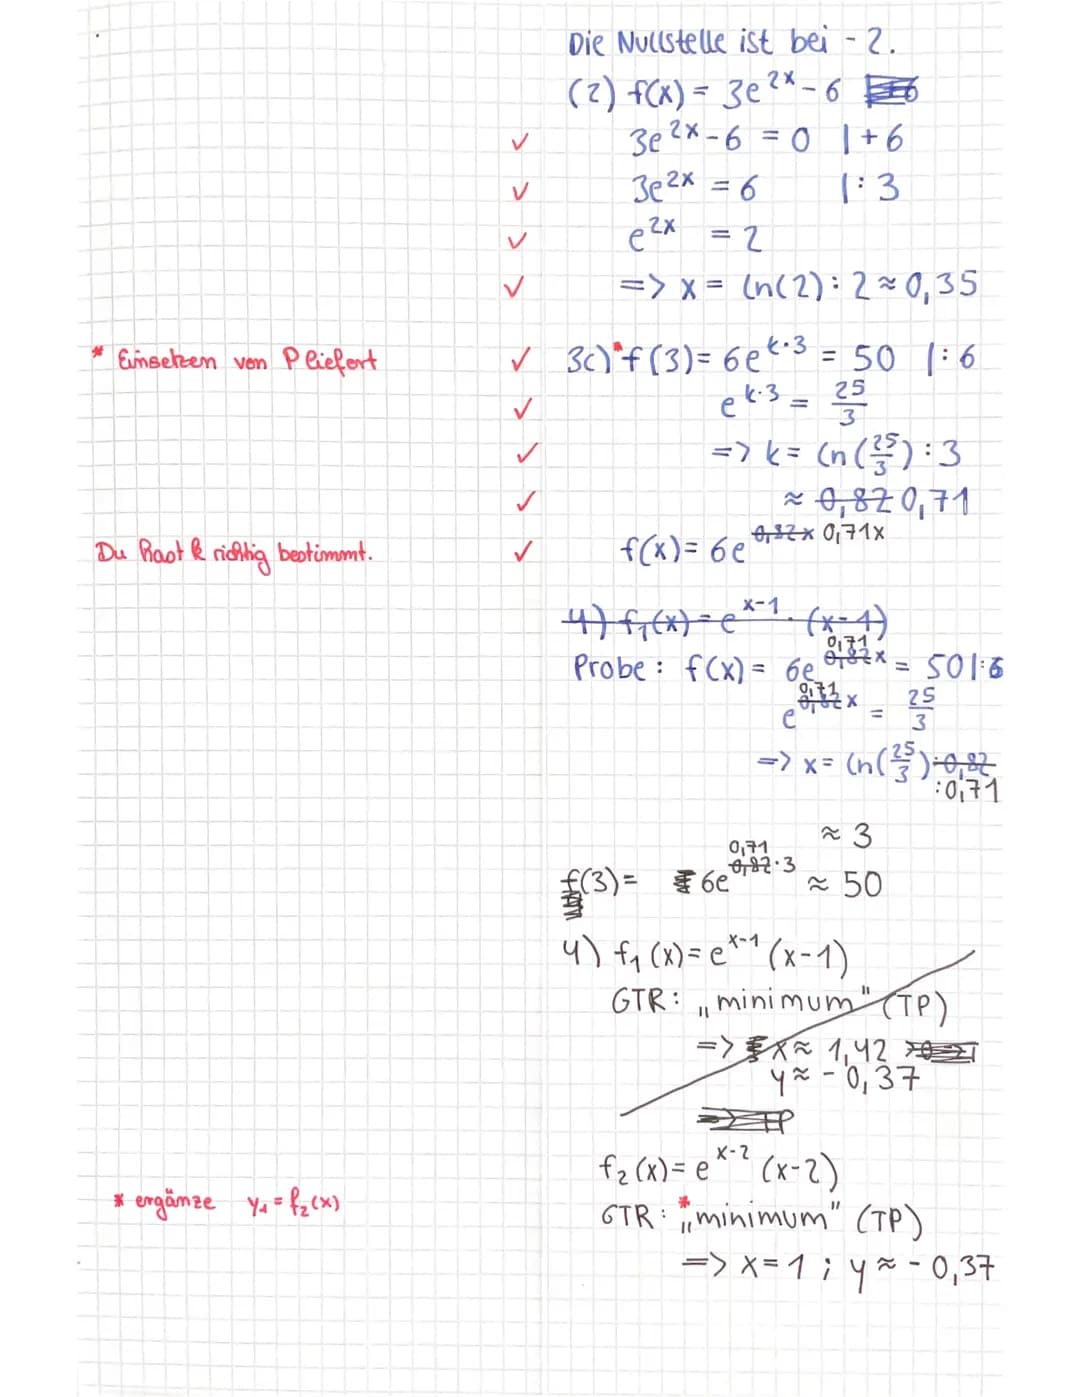 Die Nullstelle ist bei -2.
(2) f(x) = 3e^{2x} - 6
✓ 3e^{2x} - 6 = 0 | +6
✓ 3e^{2x} = 6 | : 3
✓ e^{2x} = 2
✓ => x = ln(2) : 2 ≈ 0,35
* Einsetzen von P liefert ✓ 3c)* f(3) = 6e^{k·3} = 50 | : 6
✓ e^{k·3} = 25/3
✓ => k = ln(25/3) : 3
✓ ≈ 0,82 0,71
Du hast k richtig bestimmt. ✓ f(x) = 6e^{0,82x 0,71x}
4) f₁(x) = e^{x-1} · (x-1)
Probe: f(x) = 6e^{0,82 0,71 x} = 50 | : 6
e^{0,82 0,71 x} = 25/3
=> x = ln(25/3) : 0,82
: 0,71
≈ 3
f(3) = 6e^{0,82 0,71 · 3} ≈ 50
4) f₁(x) = e^{x-1} (x-1)
GTR: „minimum" (TP)
=> x ≈ 1,42
y ≈ -0,37
=> TP
f₂(x) = e^{x-2} (x-2)
* ergänze y₁ = f₂(x) GTR: *„minimum" (TP)
=> x = 1 ; y ≈ -0,37